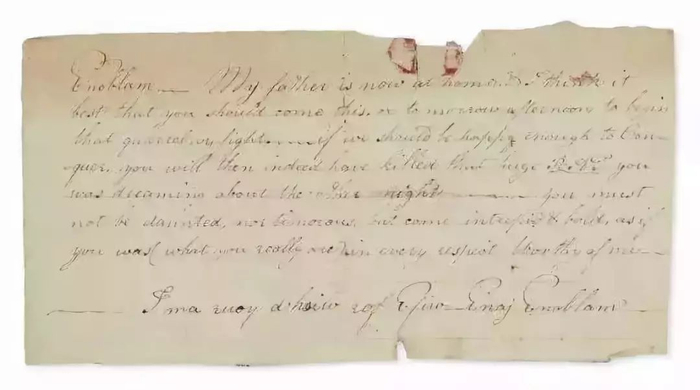 Enoblam — My father is now at home & I think it
best that you should come this, or to morrow afternoon to begin
that or fight — if we should be happy enough to Con-
quer, you will then indeed have killed that huge you
was dreaming about the other night — you must
not be daunted, nor timorous, but come intrepid & bold, as if
you was( what you really are) in every respect Worthy of me —
I ma ruoy d'hsiw rof Efiw Enaj Enoblam